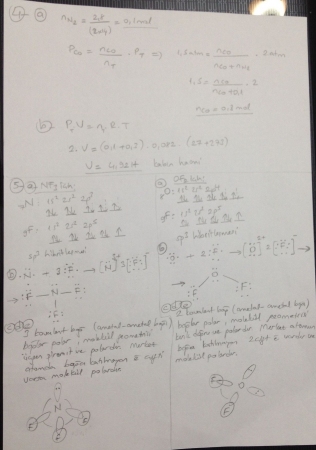 4- a) nN₂ = 2,8 / (2×14) = 0,1 mol
P_CO = n_CO / n_T . P_T => 1,5 atm = n_CO / (n_CO + n_N₂) . 2 atm
1,5 = n_CO / (n_CO + 0,1) . 2
n_CO = 0,3 mol
b) P.V = n.R.T
2. V = (0,1+0,3) . 0,082 (27+273)
V = 4,92 lt
5- a) NF₃ için:
₇N: 1s² 2s² 2p³
₉F: 1s² 2s² 2p⁵
sp³ hibritleşmesi
a) OF₂ için:
₈O: 1s² 2s² 2p⁴
₉F: 1s² 2s² 2p⁵
sp³ hibritleşmesi
b)
F N F
F
b)
F O F
3 kovalent bağ (ametal-ametal bağı)
bağlar polar, molekül geometrisi
üçgen piramit ve polardır. Merkez
atomda bağa katılmayan e⁻ çifti
varsa molekül polardır.
2 kovalent bağ (ametal-ametal bağı)
bağlar polar, molekül geometrisi
kırık doğru ve polardır. Merkez atomda
bağa katılmayan 2 çift e⁻ vardır
molekül polardır.
N
F F F
O
F F